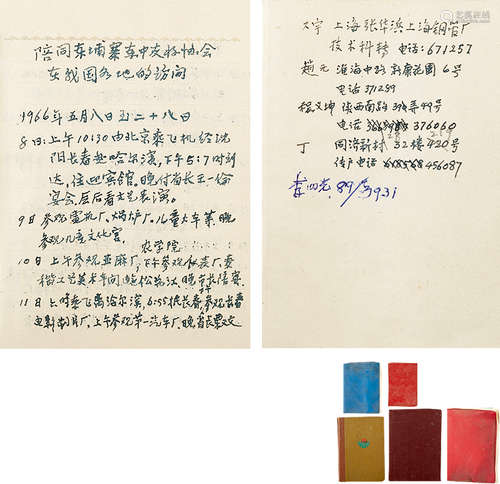 陪同柬埔寨柬中友好协会
在我国各地的访问
1966年五月八日至二十八日
8日:上午10:30由北京乘飞机经沈
阳长春赴哈尔滨,下午5:7时到
达,住迎宾馆。晚付省长王一伦
宴会,宴后看文艺表演。
9日参观电机厂、锅炉厂、儿童火车等,晚
参观儿童文化宫。
农学院
10日上午参观亚麻厂,下午参观仪表厂、
工艺美术 松花江,晚 陪餐。
11日 时乘飞离哈尔滨,6:55抵长春,参观长春
电影制片厂,上午参观第一汽车厂,晚省长
上海张华浜上海钢管厂
技术科转 电话:671257
赵元 淮海中路新康花园6号
电话371289
陕西南路 弄49号
电话 376060
丁 同济新村 32楼420号
传户电话 456087
李四光 89/ 931